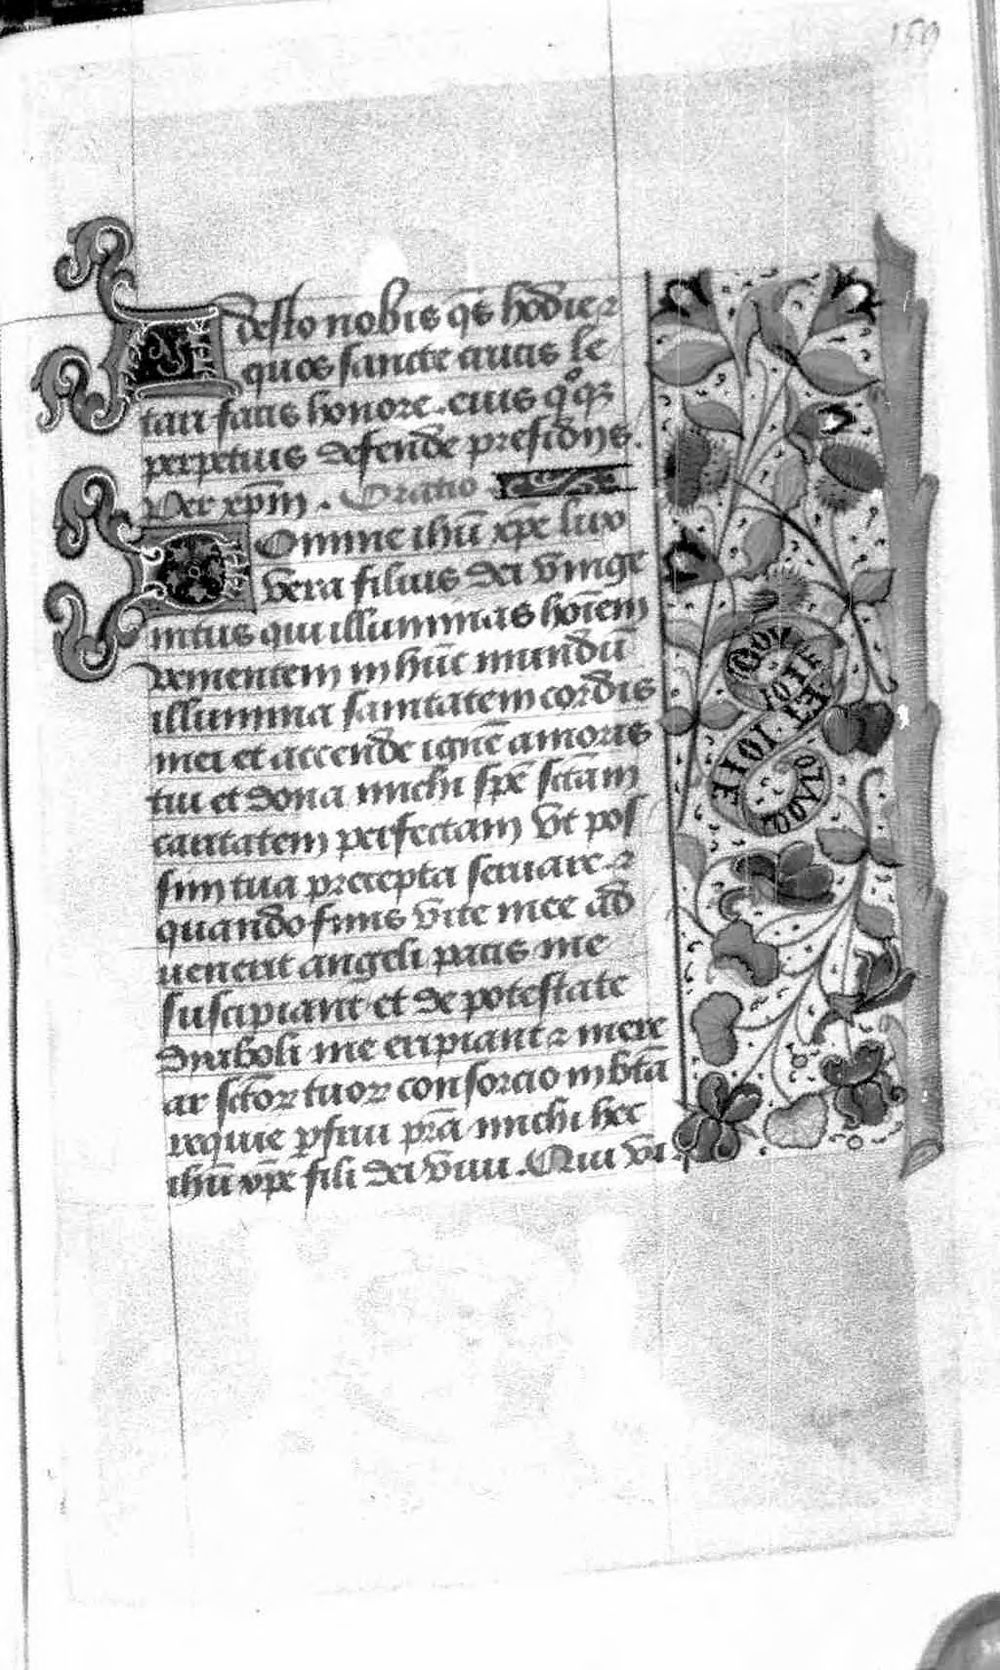 159
Adesto nobis q̄s hodie ⁊
quos sancte crucis le
tari facis honore. eius q°q⁊
perpetuis defende presidijs.
Per xp̄m. Oratio
Domine ihū xp̄e lux
vera filius dei vnige
nitus qui illuminas hoīem
venientem in hūc mundū
illumina sanitatem cordis
mei et accende ignē amoris
tui et dona michi spē sctām
caritatem perfectam vt pos
sim tua precepta seruare ⁊
quando finis vite mee ad
uenerit angeli pacis me
suscipiant et de potestate
diaboli me eripiant ⁊ mere
ar sctōr tuor consorcio in btā
requie pfrui prā michi hec
ihū xp̄e fili dei viui. Qui vi
ET IOIE